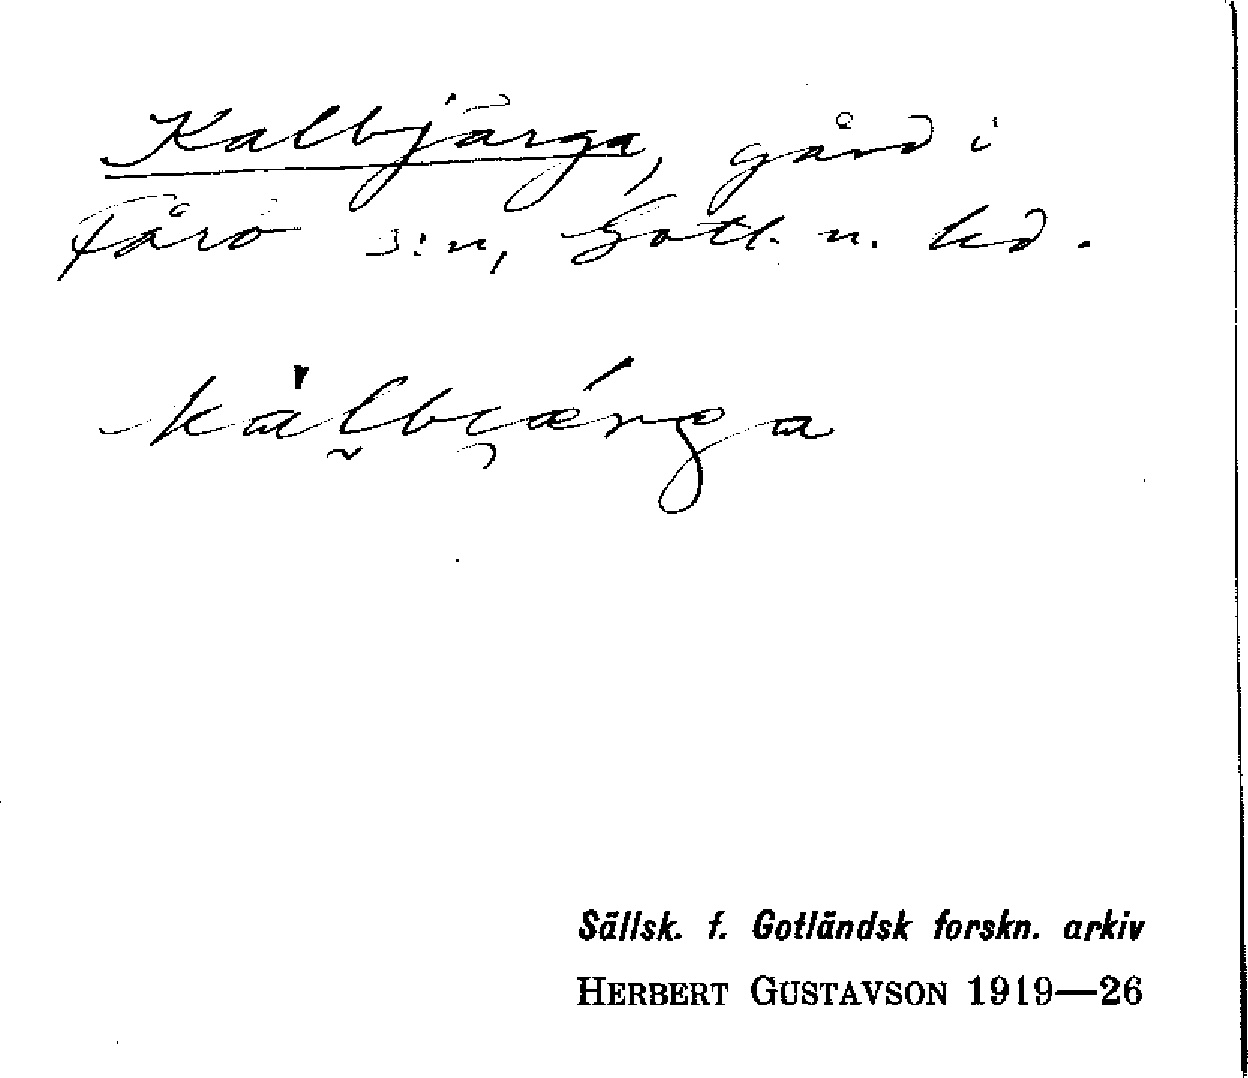 Kalbjärga, gård i
Fårö s:n, Gotl. n. hd.
kàl̬bi̯ǽrga
Sällsk. f. Gotländsk forskn. arkiv
HERBERT GUSTAVSON 1919—26